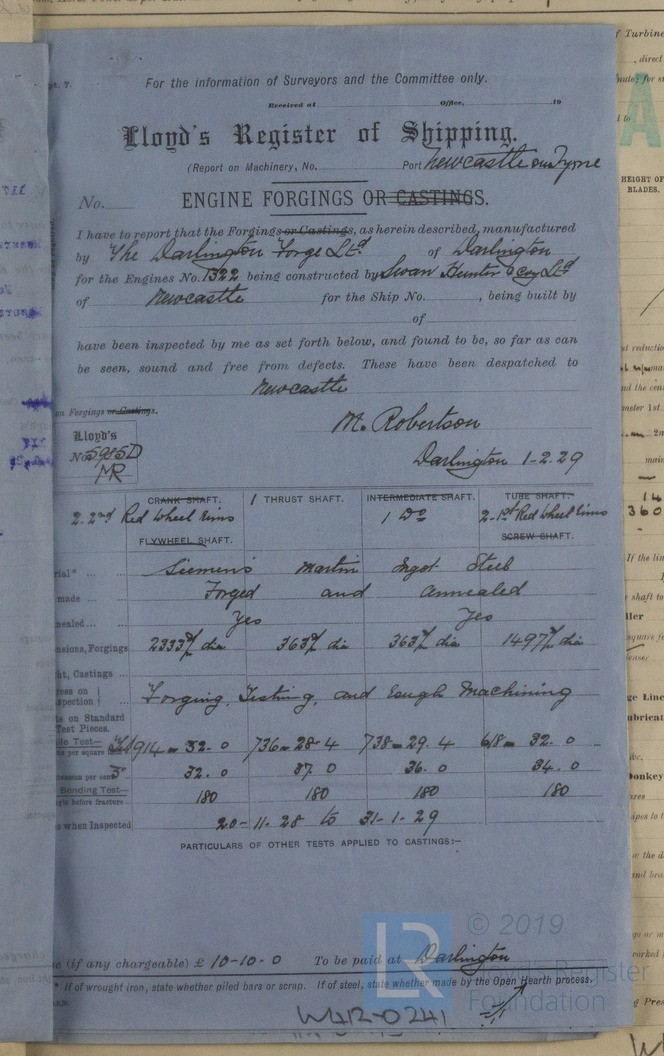 For the information of Surveyors and the Committee only.
Received at Office, 19
Lloyd's Register of Shipping.
(Report on Machinery, No. Port Newcastle on Tyne
No. ENGINE FORGINGS OR CASTINGS.
I have to report that the Forgings or Castings, as herein described, manufactured
by The Darlington Forge Ltd of Darlington
for the Engines No. 1322 being constructed by Swan Hunter & Coy Ltd
of Newcastle for the Ship No. , being built by
of
have been inspected by me as set forth below, and found to be, so far as can
be seen, sound and free from defects. These have been despatched to
Newcastle
on Forgings or Castings.
M. Robertson
Lloyd's
No 5985D
MR
Darlington 1-2-29
CRANK SHAFT. 1 THRUST SHAFT. INTERMEDIATE SHAFT. TUBE SHAFT.
2. 2nd Red Wheel Rims 1 Do 2. 1st Red Wheel rims
FLYWHEEL SHAFT. SCREW SHAFT.
Siemens Martin Ingot Steel
made Forged and annealed
Yes Yes
Forgings 2333 dia 363 dia 363 dia 1497 dia
Castings
Forging, Testing, and Rough Machining
on Standard
Test Pieces.
Test— 914 = 32.0 736 = 28.4 738 = 29.4 618 = 32.0
32.0 37.0 36.0 34.0
Bending Test—
before fracture 180 180 180 180
when Inspected 20-11-28 to 31-1-29
PARTICULARS OF OTHER TESTS APPLIED TO CASTINGS:—
(if any chargeable) £ 10-10-0 To be paid at Darlington
* If of wrought iron, state whether piled bars or scrap. If of steel, state whether made by the Open Hearth process.
W412-0241
LR
© 2019
Lloyd's Register
Foundation
HEIGHT OF
BLADES.